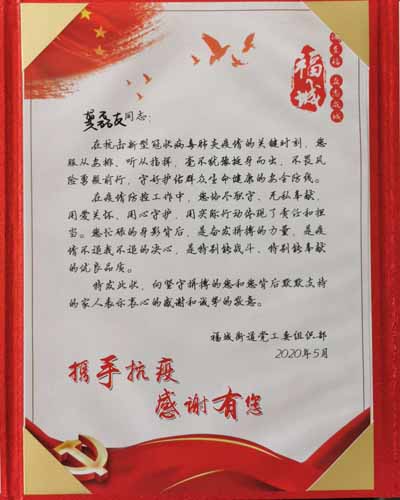 福城
龚磊友同志：
在抗击新型冠状病毒肺炎疫情的关键时刻，您
服从安排、听从指挥，毫不犹豫挺身而出，不畏风
险勇毅前行，守好护佑群众生命健康的安全防线。
在疫情防控工作中，您恪尽职守、无私奉献，
用爱关怀、用心守护，用实际行动体现了责任和担
当。您忙碌的身影背后，是奋发拼搏的力量，是疫
情不退我不退的决心，是特别能战斗、特别能奉献
的优良品质。
特发此状，向坚守拼搏的您和您背后默默支持
的家人表示衷心的感谢和诚挚的敬意。
福城街道党工委组织部
2020年5月
携手抗疫
感谢有您